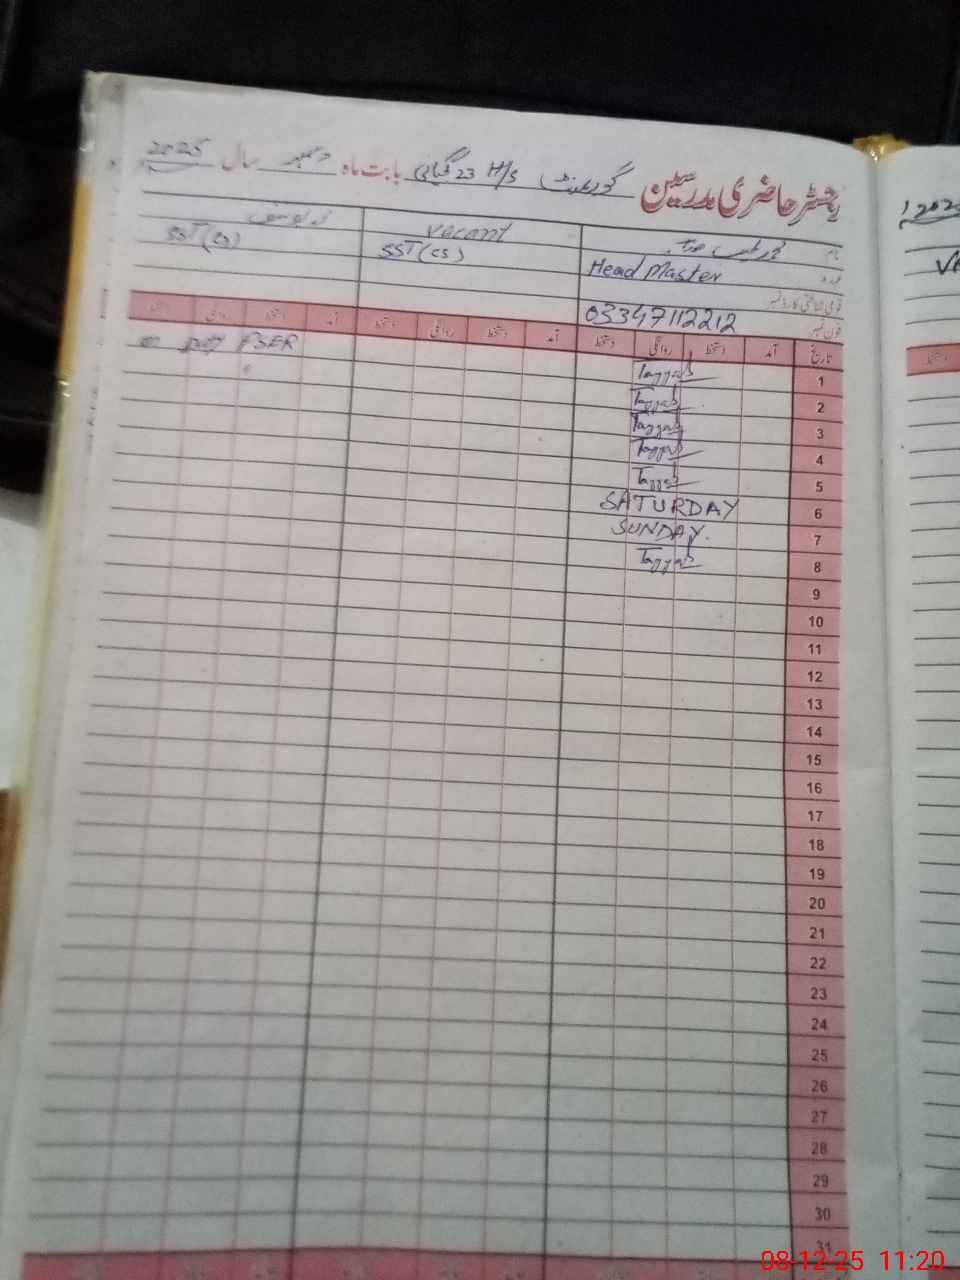 رجسٹر حاضری مدرسین گورنمنٹ H/S 23 بابت ماہ دسمبر سال 2025
نام
Vacant
عہدہ Head Master
SST (CS)
SST (CS)
قومی شناختی کارڈ نمبر
فون نمبر 03347112212
تاریخ آمد دستخط روانگی دستخط آمد دستخط روانگی دستخط آمد دستخط روانگی دستخط
1
2
3
4
5
6 SATURDAY
7 SUNDAY.
8
9
10
11
12
13
14
15
16
17
18
19
20
21
22
23
24
25
26
27
28
29
30
31
08-12-25 11:20